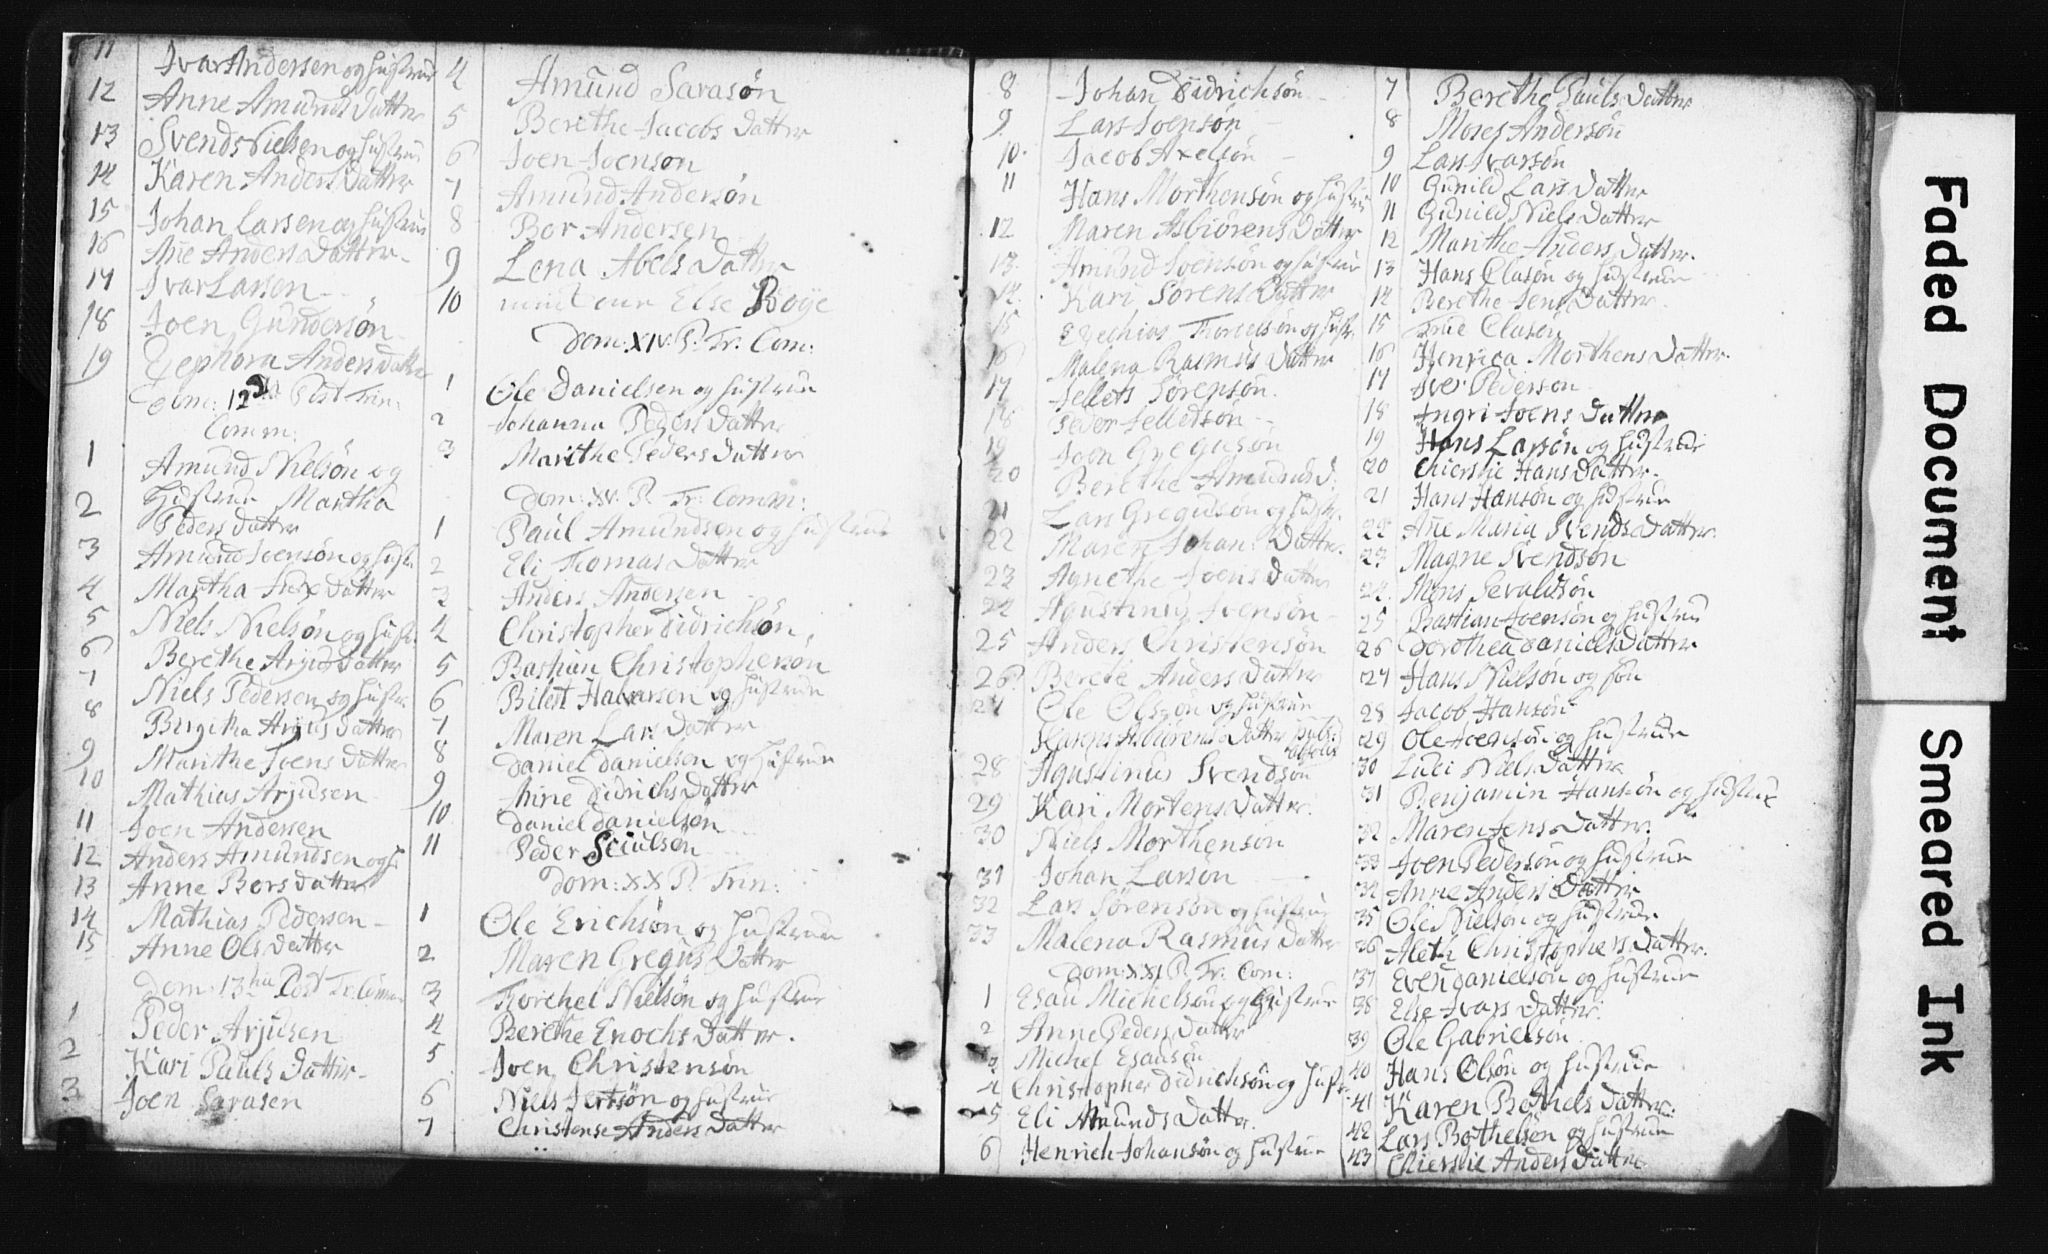 11 Ivar Andersen og hustrue
12 Anne Amunds Datter
13 Svend Nielsen og hustru
14 Karen Anders Datter
15 Johan Larsen og hustrue
16 Añe Anders Datter
17 Ivar Larsen
18 Joen Gundersøn
19 Zephora Anders Datter
12 Post Trin:
Comm:
1 Amund Nielsøn og
2 Hustrue Martha
Peders Datter
3 Amund Joensøn og hust:
4 Martha Datter
5 Niels Nielsøn og hust:
6 Berethe Arjus Datter
7 Niels Pedersen og hustr:
8 Birgitha Arjus Datter
9 Marithe Joens Datter
10 Mathias Arjusen
11 Joen Andersen
12 Anders Amundsen og h:
13 Anne Bers Datter
14 Mathias Pedersen
15 Anne Ols Datter
Dom: 13tia Post Tr: Comm
1 Peder Arjusen
2 Kari Pauls Datter
3 Joen Sarasen
4 Amund Sarasøn
5 Berethe Jacobs Datter
6 Joen Joenson
7 Amund Andersøn
8 Ber Andersen
9 Lena Abels Datter
10 Else Boye
Dom: XIV. P. Tr. Com:
1 Ole Danielsen og hustrue
2 Johanna Peders Datter
3 Marithe Peders Datter
Dom: XV. P. Tr: Comm:
1 Paul Amundsen og hustrue
2 Eli Thomas Datter
3 Anders Andersen
4 Christopher Didrichsøn
5 Bastian Christophersøn
6 Halvarsen og hustrue
7 Maren Lars Datter
8 Daniel Danielsen og hustrue
9 Anne Didrichs Datter
10 Daniel Danielsen
11 Peder
Dom: XX P. Trin:
1 Ole Erichsøn og hustrue
2 Maren Gregus Datter
3 Thorchel Nielsøn og hustrue
4 Berethe Enochs Datter.
5 Joen Christensøn
6 Niels og hustrue
7 Christense Anders Datter
8 Johan Didrichsøn
9 Lars Joensøn
10 Jacob Axelsøn
11 Hans Morthensøn og hustru
12 Maren Asbiørens Datter
13 Amund Svensøn og hustrue
14 Kari Sørens Datter
15 Ezechias og hust:
16 Malena Rasmus Datter
17 Jellets Sørensøn.
18 Peder Jelletsøn
19 Joen Gregusøn
20 Berethe Amunds D:
21 Lars Gregusøn og hust:
22 Maren Johan: Datter.
23 Agnethe Joens Datter
24 Agustinus Svensøn
25 Anders Christensøn
26 Berete Anders Datter
27 Ole Olsøn og hustrue
Karen Asbiørens Datter
28 Agustinus Svendsøn
29 Kari Mortens Datter
30 Niels Morthenson
31 Johan Larsøn
32 Lars Sørensøn og hustrue
33 Malena Rasmus Datter
Dom: XXI P. Tr: Com:
1 Esau Michelsøn og hustrue
2 Anne Peders Datter
3 Michel Esausøn
4 Christopher Didrichsøn og hustr
5 Eli Amunds Datter.
6 Henrich Johansøn og hustrue
7 Berethe Pauls Datter
8 Moses Andersøn
9 Lars Ivarsøn
10 Gunild Lars Datter
11 Gunild Niels Datter
12 Marithe Anders Datter.
13 Hans Clasøn og hustrue
14 Berethe Jens Datter
15 Clasen
16 Henrica Morthens Datter.
17 Iver Pederson
18 Ingri Joens Datter
19 Hans Larsøn og hustrue
20 Chierstie Hans Datter.
21 Hans Hansøn og hustrue
22 Añe Maria Svends Datter.
23 Magne Svendsøn
24 Mons Sevaldsøn
25 Bastian Joensøn og hustrue
26 Dorothea Daniels Datter
27 Hans Nielsøn og søn
28 Jacob Hansøn
29 Ole Joensøn og hustrue
30 Luci Niels Datter
31 Benjamin Hansøn og hustrue
32 Maren Jens Datter.
33 Joen Pedersøn og hustrue
34 Anne Anders Datter
35 Ole Nielsøn og hustrue
36 Aleth Christophers Datter.
37 Even Danielsøn og hustrue
38 Else Ivars Datter.
39 Ole Gabrielsøn
40 Hans Olsøn og hustrue
41 Karen Bothels Datter.
42 Lars Bothelsøn og hustrue
43 Chierstie Anders Datter
Faded Document
Smeared Ink